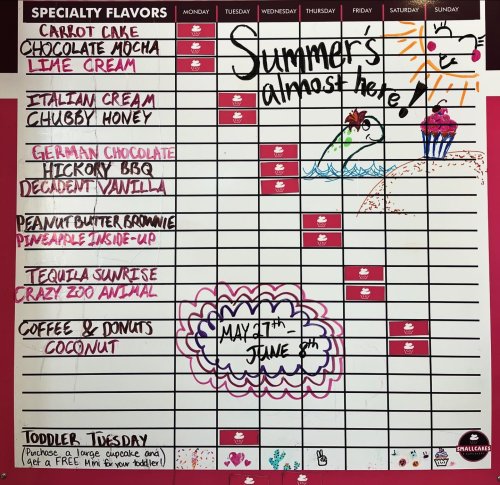 SPECIALTY FLAVORS MONDAY TUESDAY WEDNESDAY THURSDAY FRIDAY SATURDAY SUNDAY
CARROT CAKE
CHOCOLATE MOCHA
LIME CREAM
Summer's
almost here!
ITALIAN CREAM
CHUBBY HONEY
GERMAN CHOCOLATE
HICKORY BBQ
DECADENT VANILLA
PEANUT BUTTER BROWNIE
PINEAPPLE INSIDE-UP
TEQUILA SUNRISE
CRAZY ZOO ANIMAL
COFFEE & DONUTS
COCONUT
MAY 27th -
JUNE 8th
TODDLER TUESDAY
(Purchase a large cupcake and
get a FREE Mini for your toddler!)
SMALLCAKES